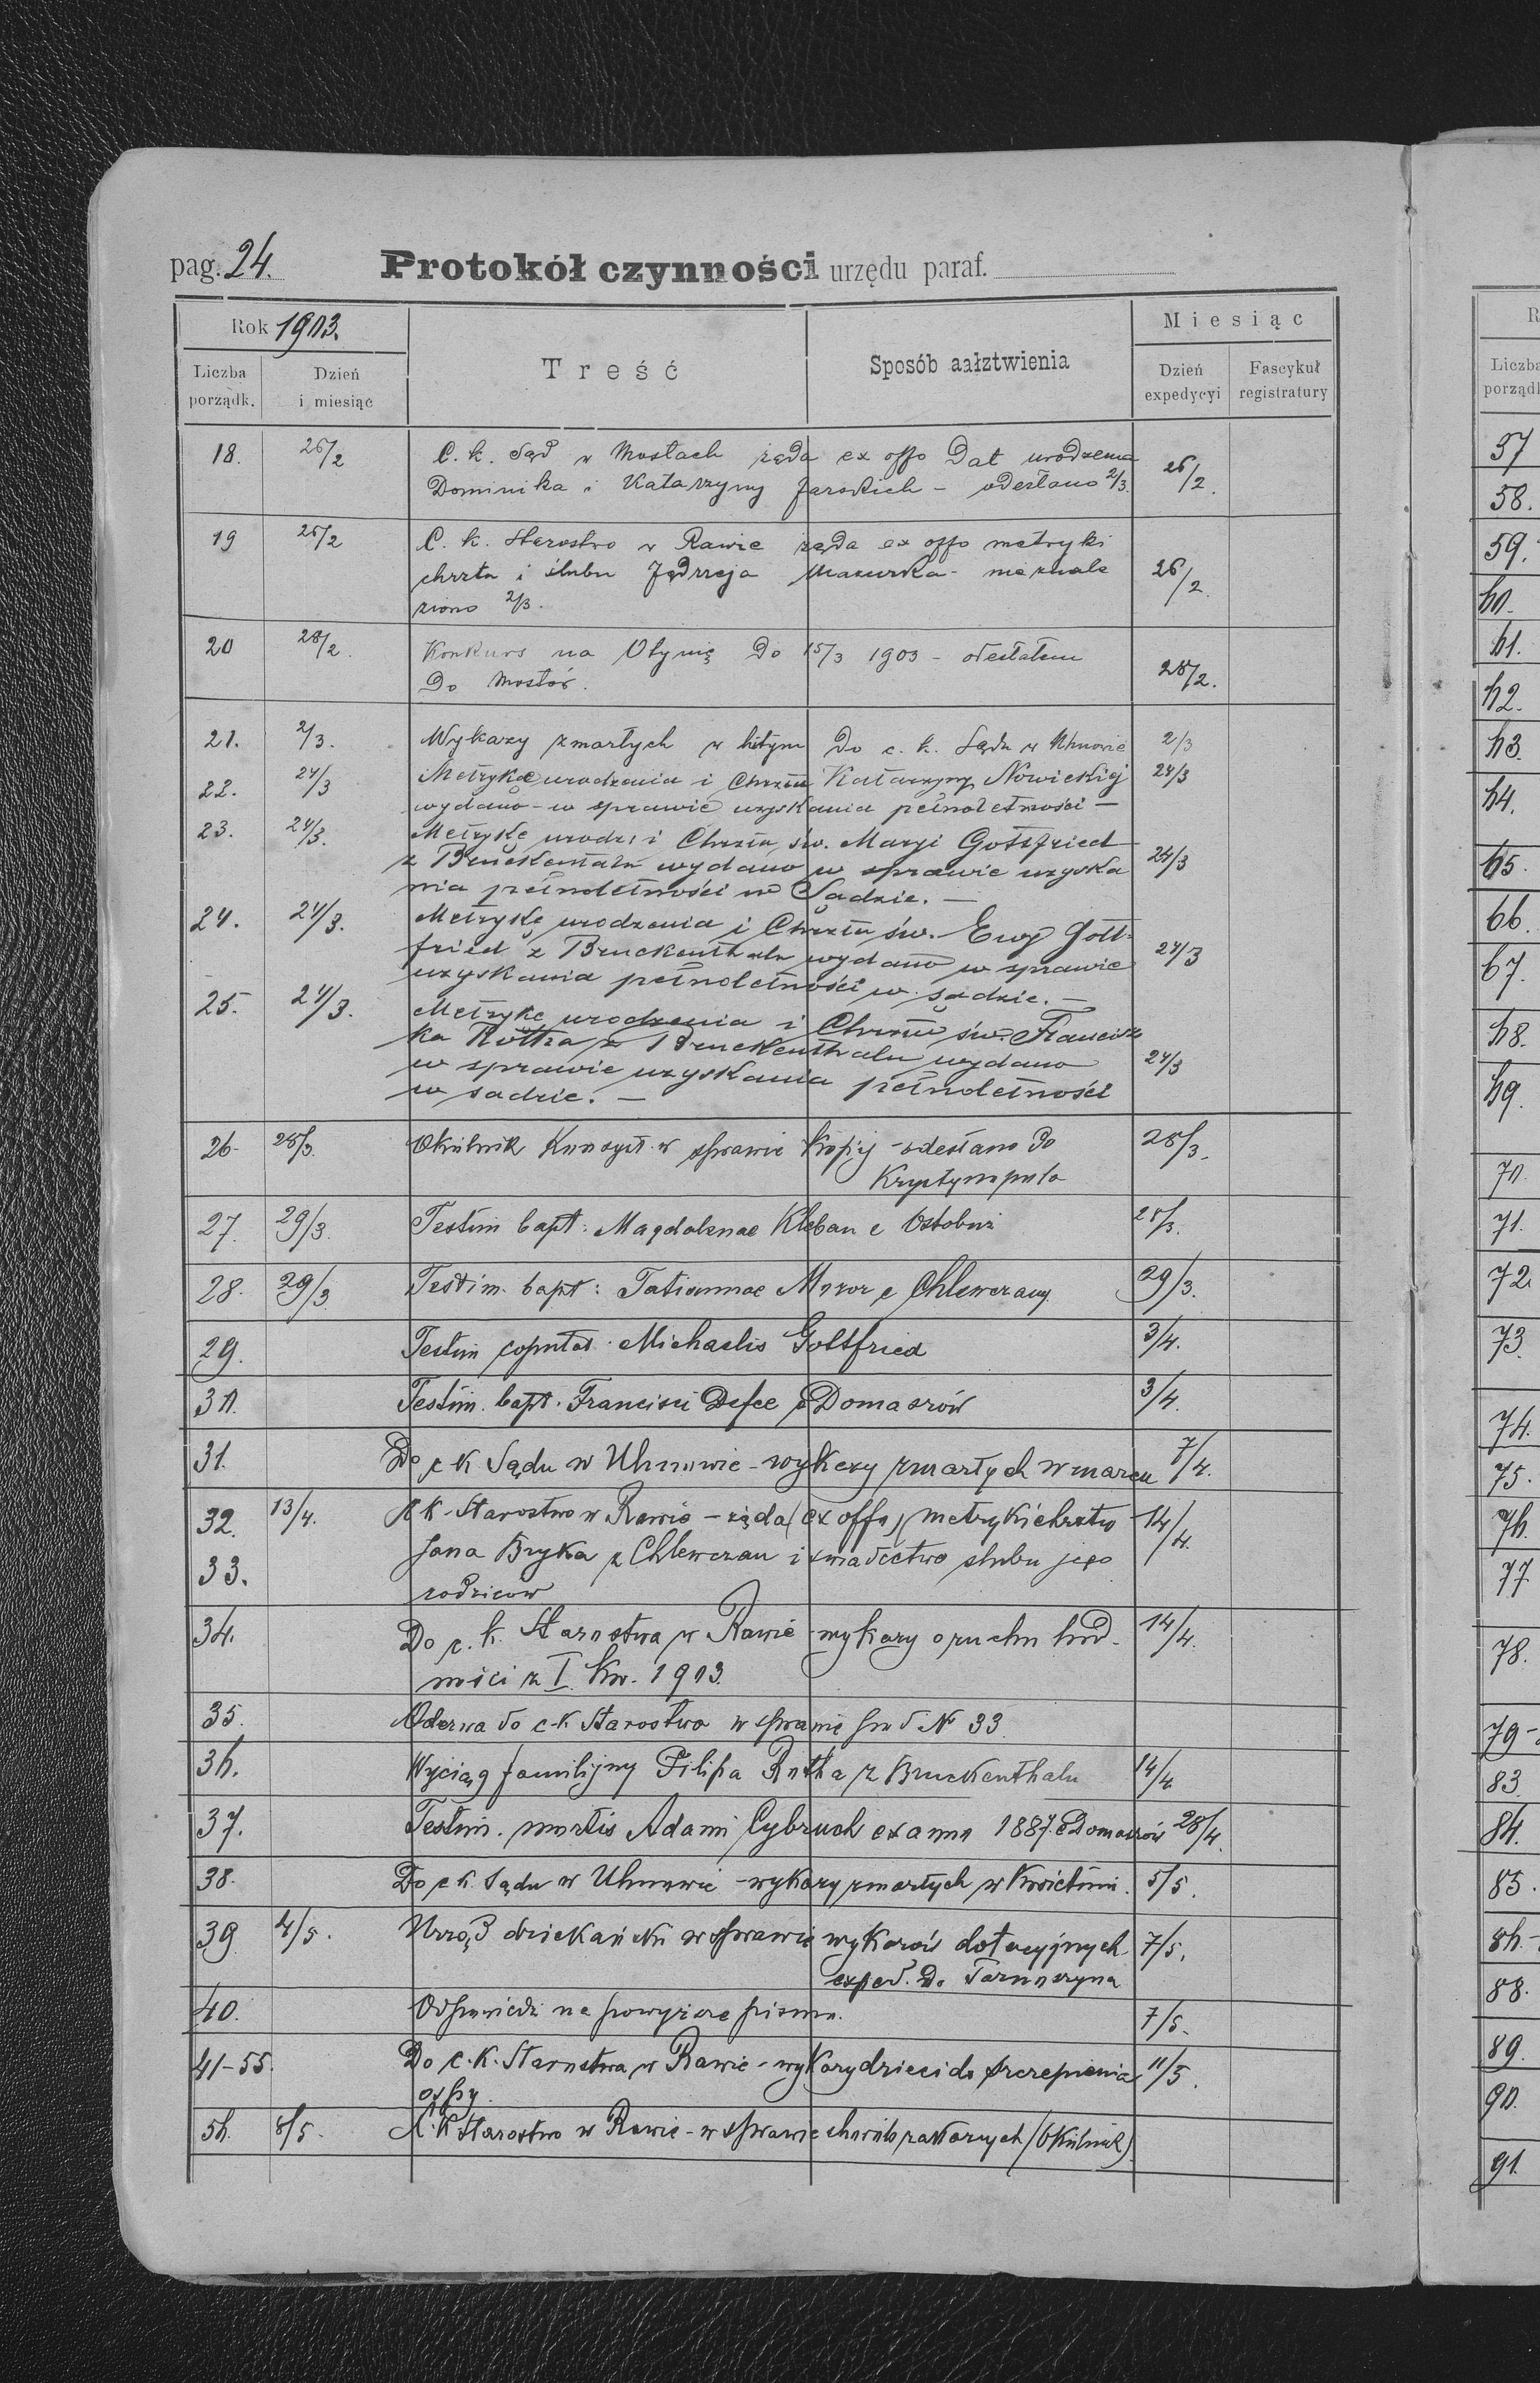 pag. 24.
Protokół czynności urzędu paraf.
Rok 1903.
Miesiąc
Treść
Sposób aałztwienia
Liczba porządk.
Dzień i miesiąc
Dzień expedycyi
Fascykuł registratury
18. 26/2 C. k. Sąd w Mostach żąda ex offo Dat urodzenia 26/2.
Dominika i Katarzyny Jarskich - odesłano 2/3.
19 26/2 C. k. Starostwo w Rawie żąda ex offo metryki
chrztu i ślubu Jędrzeja Mazurka - nie znale 26/2.
ziono 2/3.
20 28/2. Konkurs na Ołynię Do 15/3 1903 - odesłałem
Do Mostów. 28/2.
21. 2/3. Wykazy zmarłych w lutym Do c. k. Sądu w Uhnowie 2/3
22. 24/3 Metrykę urodzenia i Chrztu Katarzyny Nowickiej 24/3
wydano - w sprawie uzyskania pełnoletności —
23. 24/3. Metrykę urodz. i Chrztu św. Maryi Gottfried
z Bruckentalu wydano w sprawie uzyska 24/3
nia pełnoletności w Sądzie. —
24. 24/3. Metrykę urodzenia i Chrztu św. Ewy Gott-
fried z Bruckenthalu wydano w sprawie 24/3
uzyskania pełnoletności w sądzie. —
25. 24/3. Metrykę urodzenia i Chrztu św. Francisz
ka Rotha z Bruckenthalu wydano
w sprawie uzyskania pełnoletności 24/3
w sadzie. —
26. 28/3. Okólnik Konsyst. w sprawie kopij - odesłano do 28/3.
Krystynopola
27. 29/3. Testim bapt: Magdalenae Kleban e Ostobuż 28/3.
28. 29/3 Testim. bapt: Tatiannae Mazur e Chlewczany 29/3.
29. Testim copulat. Michaelis Gottfried 3/4.
30. Testim. bapt. Francisci Defee e Domaszów 3/4.
31. Do c k Sądu w Uhnowie - wykazy zmarłych w marcu 7/4.
32. 13/4. C k Starostwo w Rawie - żąda (ex offo) metryki chrztu 14/4.
33. Jana Bryka z Chlewczan i świadectwo ślubu jego
rodziców
34. Do c. k. Starostwa w Rawie - wykazy o ruchu lud- 14/4.
ności z I. Kw. 1903.
35. Odezwa do c-k Starostwa w sprawie pod N 33
36. Wyciąg familijny Filipa Rotha z Bruckenthalu 14/4
37. Testim. mortis Adami Cybruch ex anno 1887. e Domaszów 28/4.
38. Do c k Sądu w Uhnowie - wykazy zmarłych w kwietniu. 5/5.
39 4/5. Urząd dziekański w sprawie wykazów dotacyjnych 7/5.
exped. Do Tarnoszyna
40. Odpowiedź na powyższe pismo. 7/5.
41-55. Do C. K. Starostwa w Rawie - wykazy dzieci do szczepienia 11/5.
ospy.
56. 8/5. C. K Starostwo w Rawie - w sprawie chorób zakaźnych (Okólnik)
R
Liczba
porządk
57
58.
59.
60.
61.
62.
63.
64.
65.
66.
67.
68.
69.
70.
71.
72
73.
74.
75.
76.
77
78.
79-
83
84.
85.
86.-
88.
89.
90.
91.